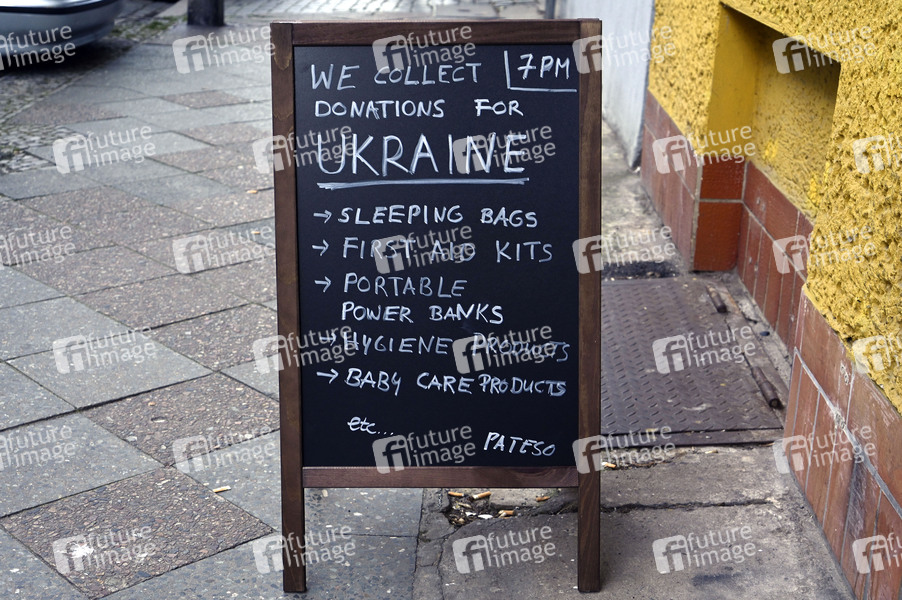 WE COLLECT 7PM
DONATIONS FOR
UKRAINE
→ SLEEPING BAGS
→ FIRST AID KITS
→ PORTABLE
POWER BANKS
→ HYGIENE PRODUCTS
→ BABY CARE PRODUCTS
etc...
PATESO
fi future image